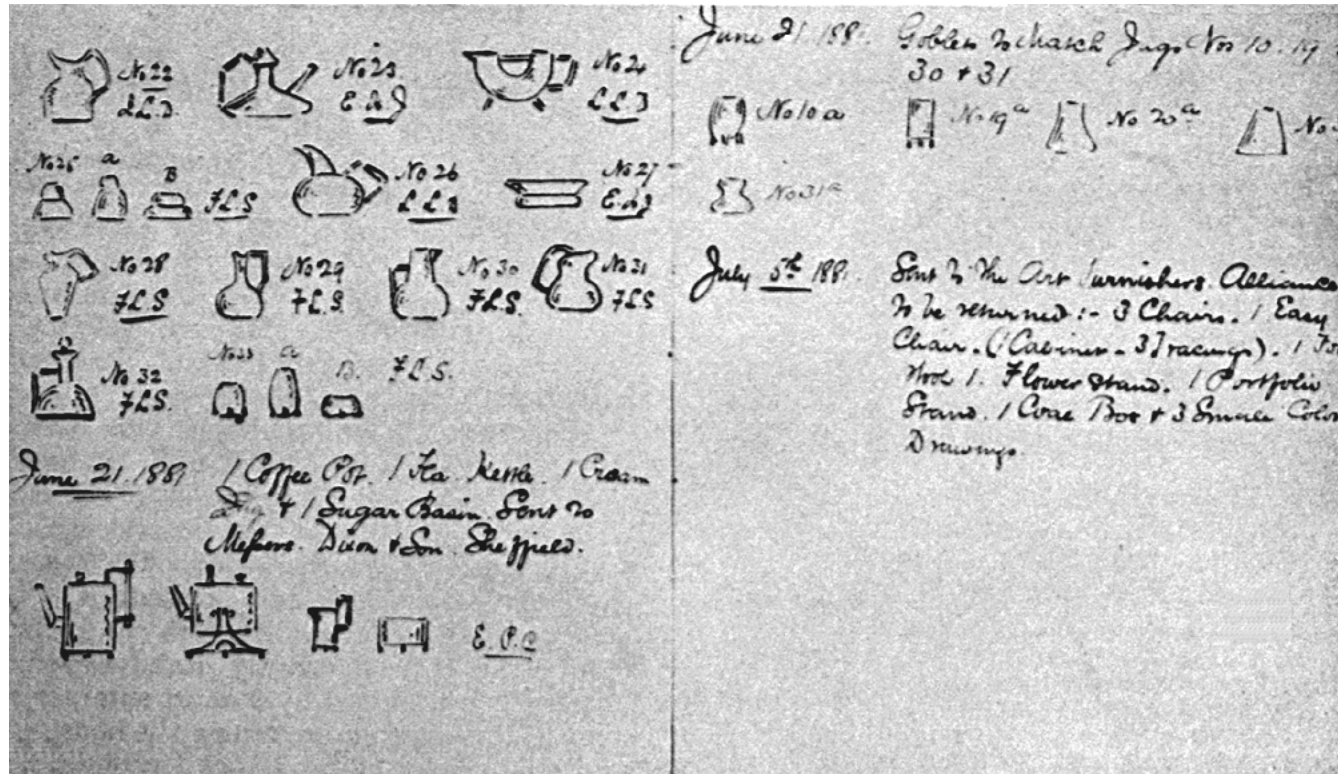 No 22 No 23 No 24
L L B E de J L L B
No 25 a B F.L.S No 26 No 27
L L B E de J
No 28 No 29 No 30 No 31
F.L.S. F.L.S. F.L.S. F.L.S
No 32 No 33 a B. F.L.S.
F.L.S.
June 21. 1881 1 Coffee Pot. 1 Tea Kettle. 1 Cream
Jug & 1 Sugar Basin. Sent to
Messrs. Dixon & Son. Sheffield.
E. P. C
June 21. 1881. Goblets to Match Jugs Nos 10. 19
30 + 31
No 10 a No 19 a No 20 a No
No 31 a
July 5th 1881. Sent to The Art Furnishers Alliance
to be returned :- 3 Chairs. 1 Easy
Chair. (1 Cabinet - 3 Tracings). 1
Stool 1. Flower Stand. 1 Portfolio
Stand. 1 Coal Box & 3 Small
Drawings.